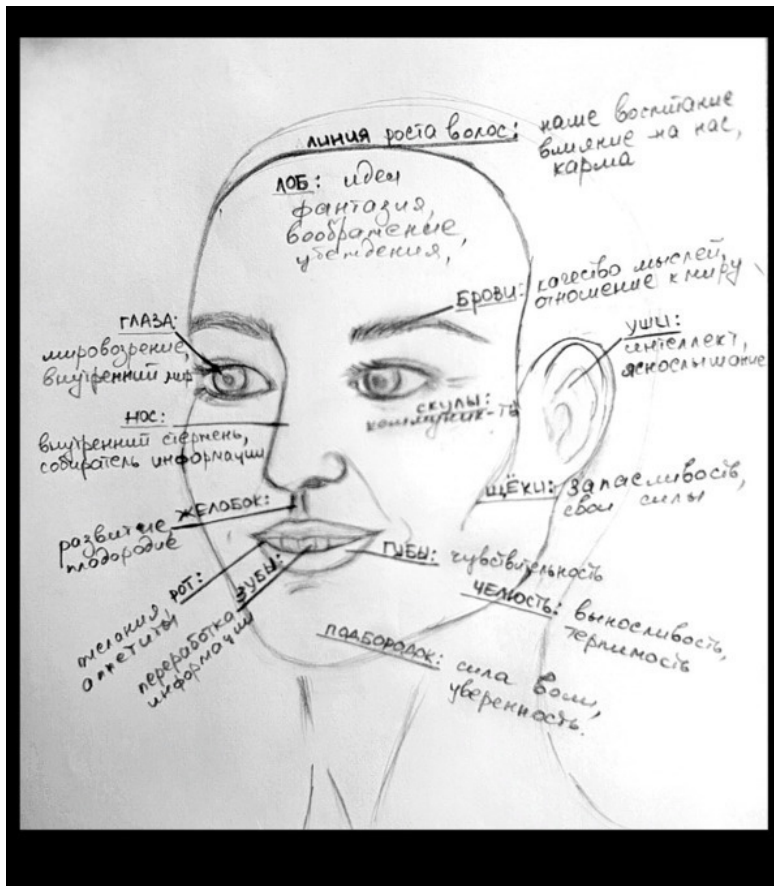 ЛИНИЯ РОСТА ВОЛОС: наше воспитание
влияние на нас,
карма
ЛОБ: идеи
фантазия,
воображение,
убеждения,
БРОВИ: качество мыслей,
отношение к миру
ГЛАЗА:
мировозрение,
внутренний мир
УШИ:
интеллект,
яснослышание
СКУЛЫ:
коммуник-ть
НОС:
внутренний стержень,
собиратель информации
ЩЁКИ: запасливость,
свои силы
ЖЕЛОБОК:
развитие
плодородие
ГУБЫ: чувствительность
РОТ:
желания,
аппетиты
ЗУБЫ:
переработка
информации
ЧЕЛЮСТЬ: выносливость,
терпимость
ПОДБОРОДОК: сила воли,
уверенность.